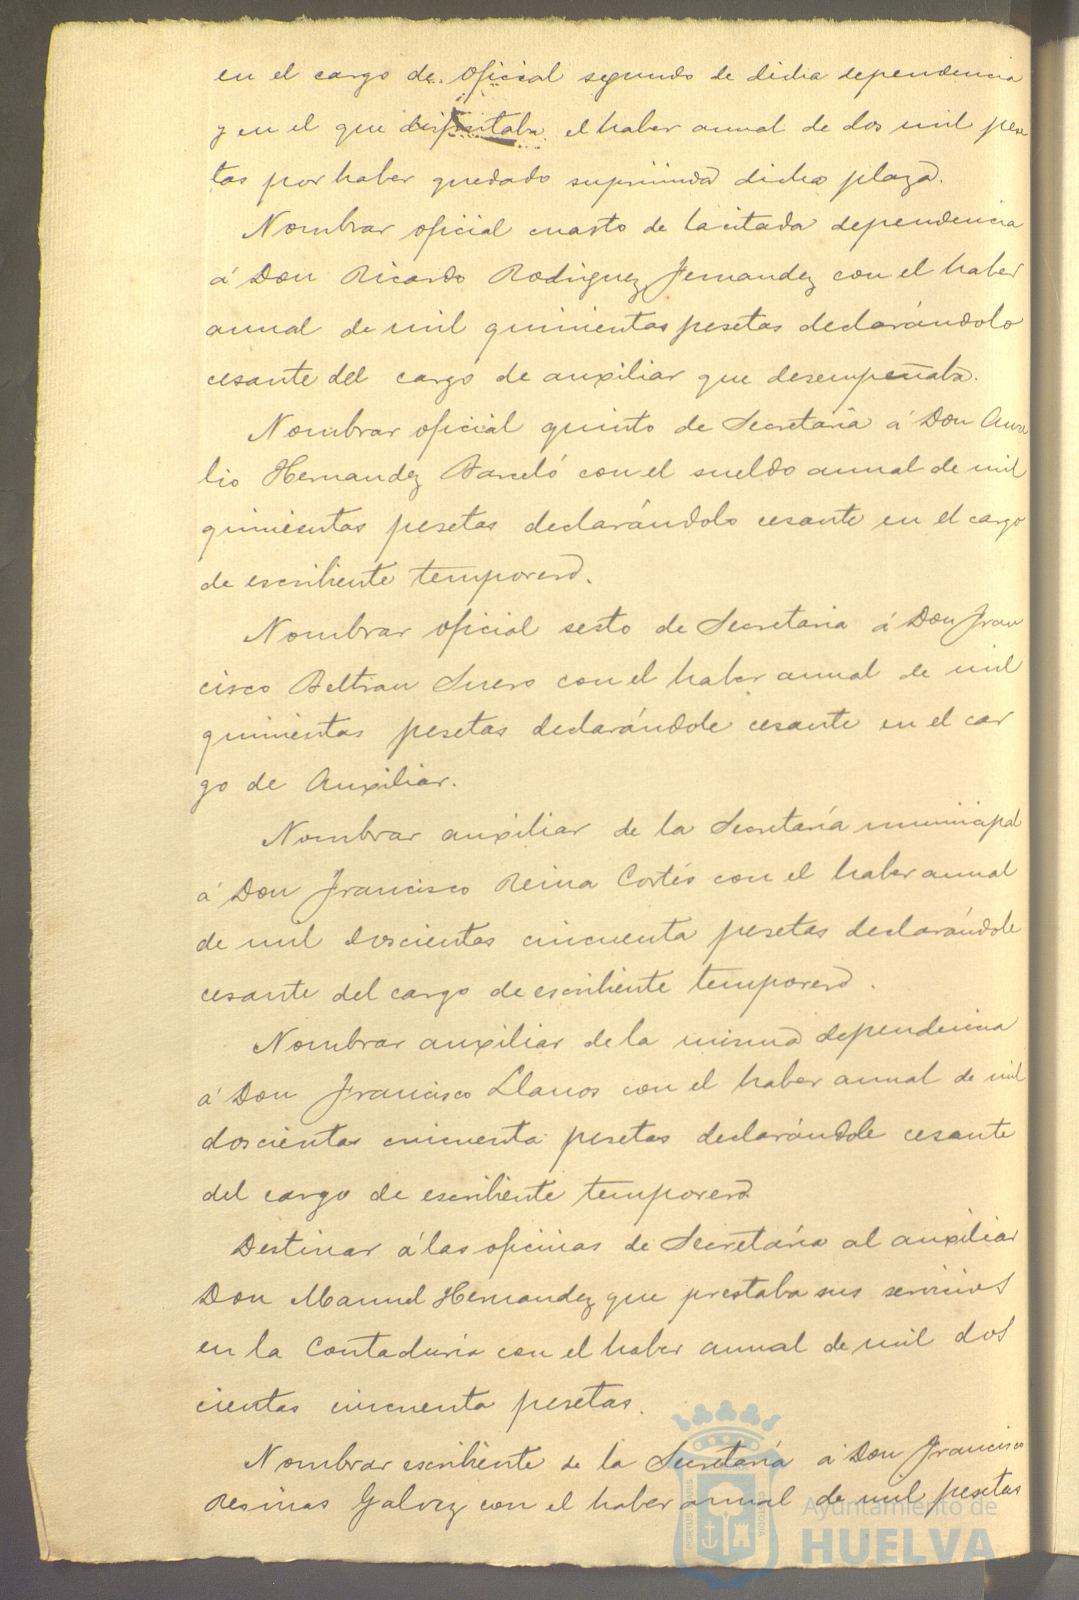 en el cargo de oficial segundo de dicha dependencia
y en el que disfrutaba el haber anual de dos mil pese
tas por haber quedado suprimida dicha plaza.
Nombrar oficial cuarto de la citada dependencia
á Don Ricardo Rodriguez Fernandez con el haber
anual de mil quinientas pesetas declarándolo
cesante del cargo de auxiliar que desempeñaba.
Nombrar oficial quinto de Secretaria á Don Aure
lio Hernandez Barceló con el sueldo anual de mil
quinientas pesetas declarándolo cesante en el cargo
de escribiente temporero.
Nombrar oficial sesto de Secretaria á Don Fran
cisco Beltran Suero con el haber anual de mil
quinientas pesetas declarándole cesante en el car
go de Auxiliar.
Nombrar auxiliar de la Secretaría municipal
á Don Francisco Reina Cortés con el haber anual
de mil doscientas cincuenta pesetas declarándole
cesante del cargo de escribiente temporero.
Nombrar auxiliar de la misma dependencia
á Don Francisco Llanos con el haber anual de mil
doscientas cincuenta pesetas declarándole cesante
del cargo de escribiente temporero
Destinar á las oficinas de Secretaría al auxiliar
Don Manuel Hernandez que prestaba sus servicios
en la Contaduría con el haber anual de mil dos
cientas cincuenta pesetas.
Nombrar escribiente de la Secretaría á Don Francisco
Resinas Galvez con el haber anual de mil pesetas
Ayuntamiento de
HUELVA